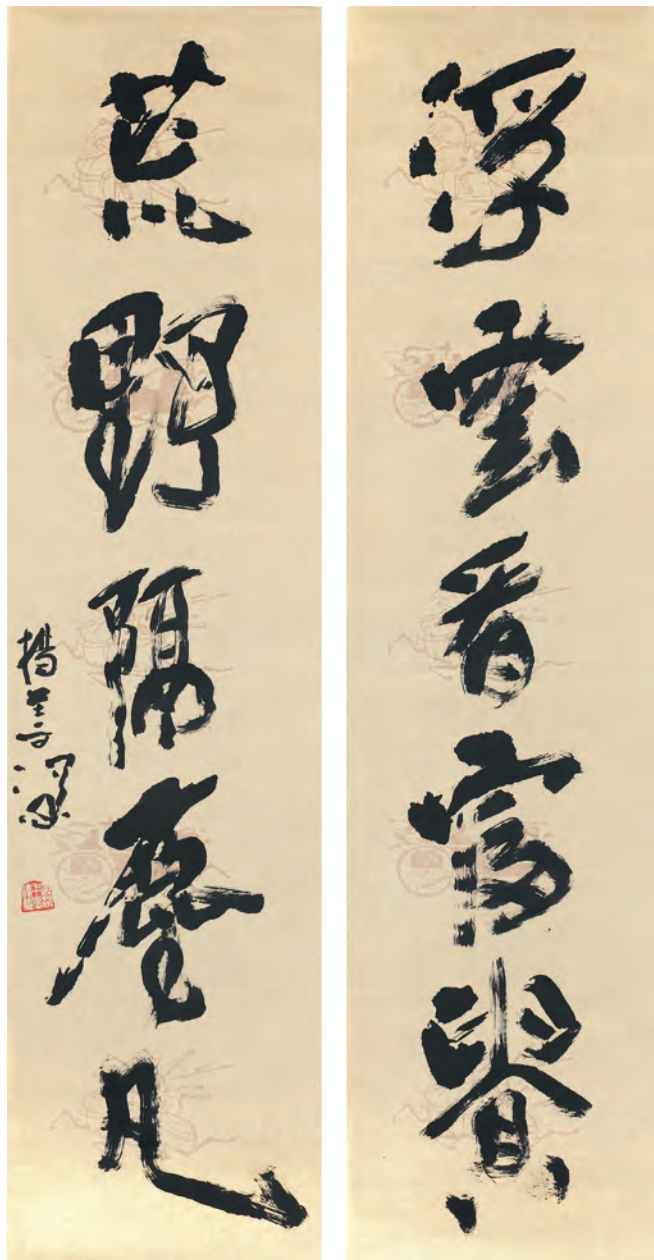 浮雲看富貴
荒野隔塵凡
楊善深